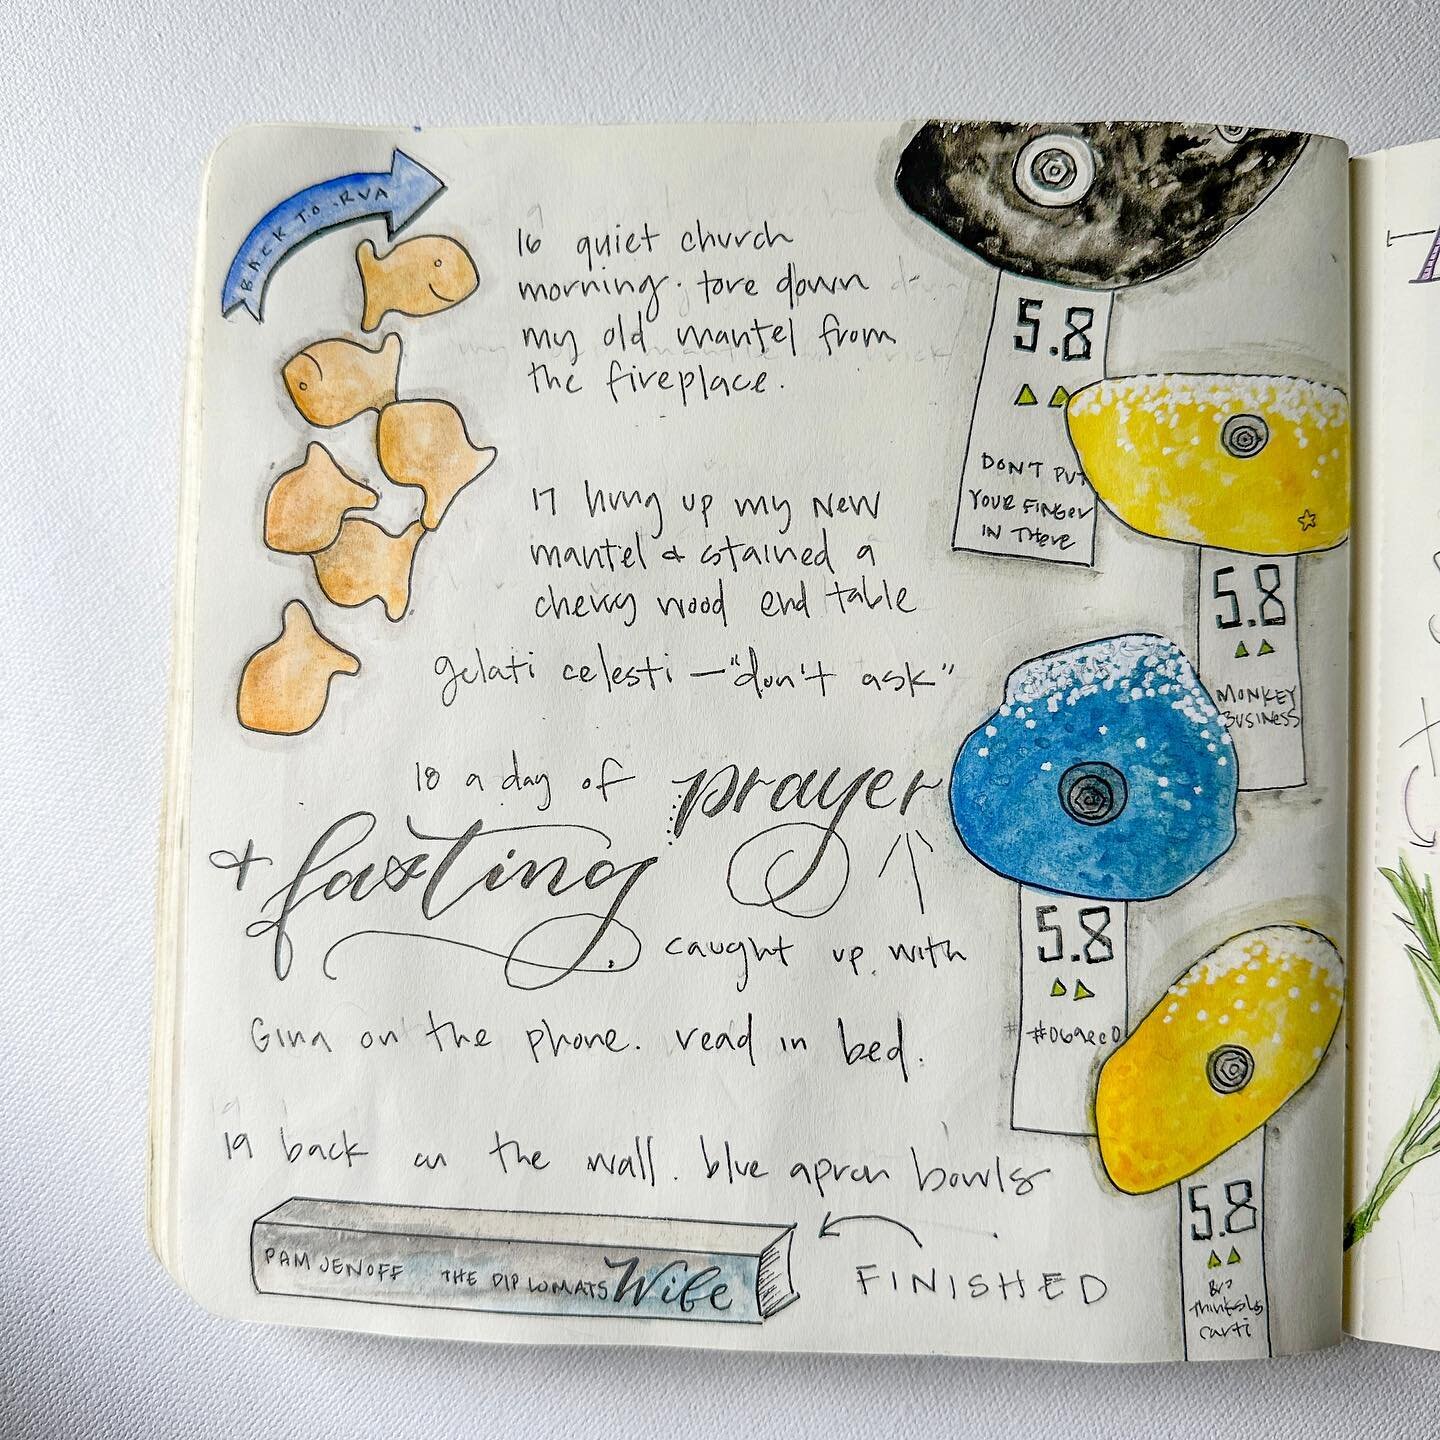 BACK TO RVA
16 quiet church
morning. tore down
my old mantel from
the fireplace.
17 hung up my new
mantel & stained a
cherry wood end table
gelati celesti — "don't ask"
18 a day of prayer
+ fasting. caught up with
Gina on the phone. read in bed.
19 back on the wall. blue apron bowls
PAM JENOFF THE DIPLOMATS Wife
FINISHED
5.8
DON'T PUT
YOUR FINGER
IN THERE
5.8
MONKEY
BUSINESS
5.8
#069ec0
5.8
Bro
thinks
carti